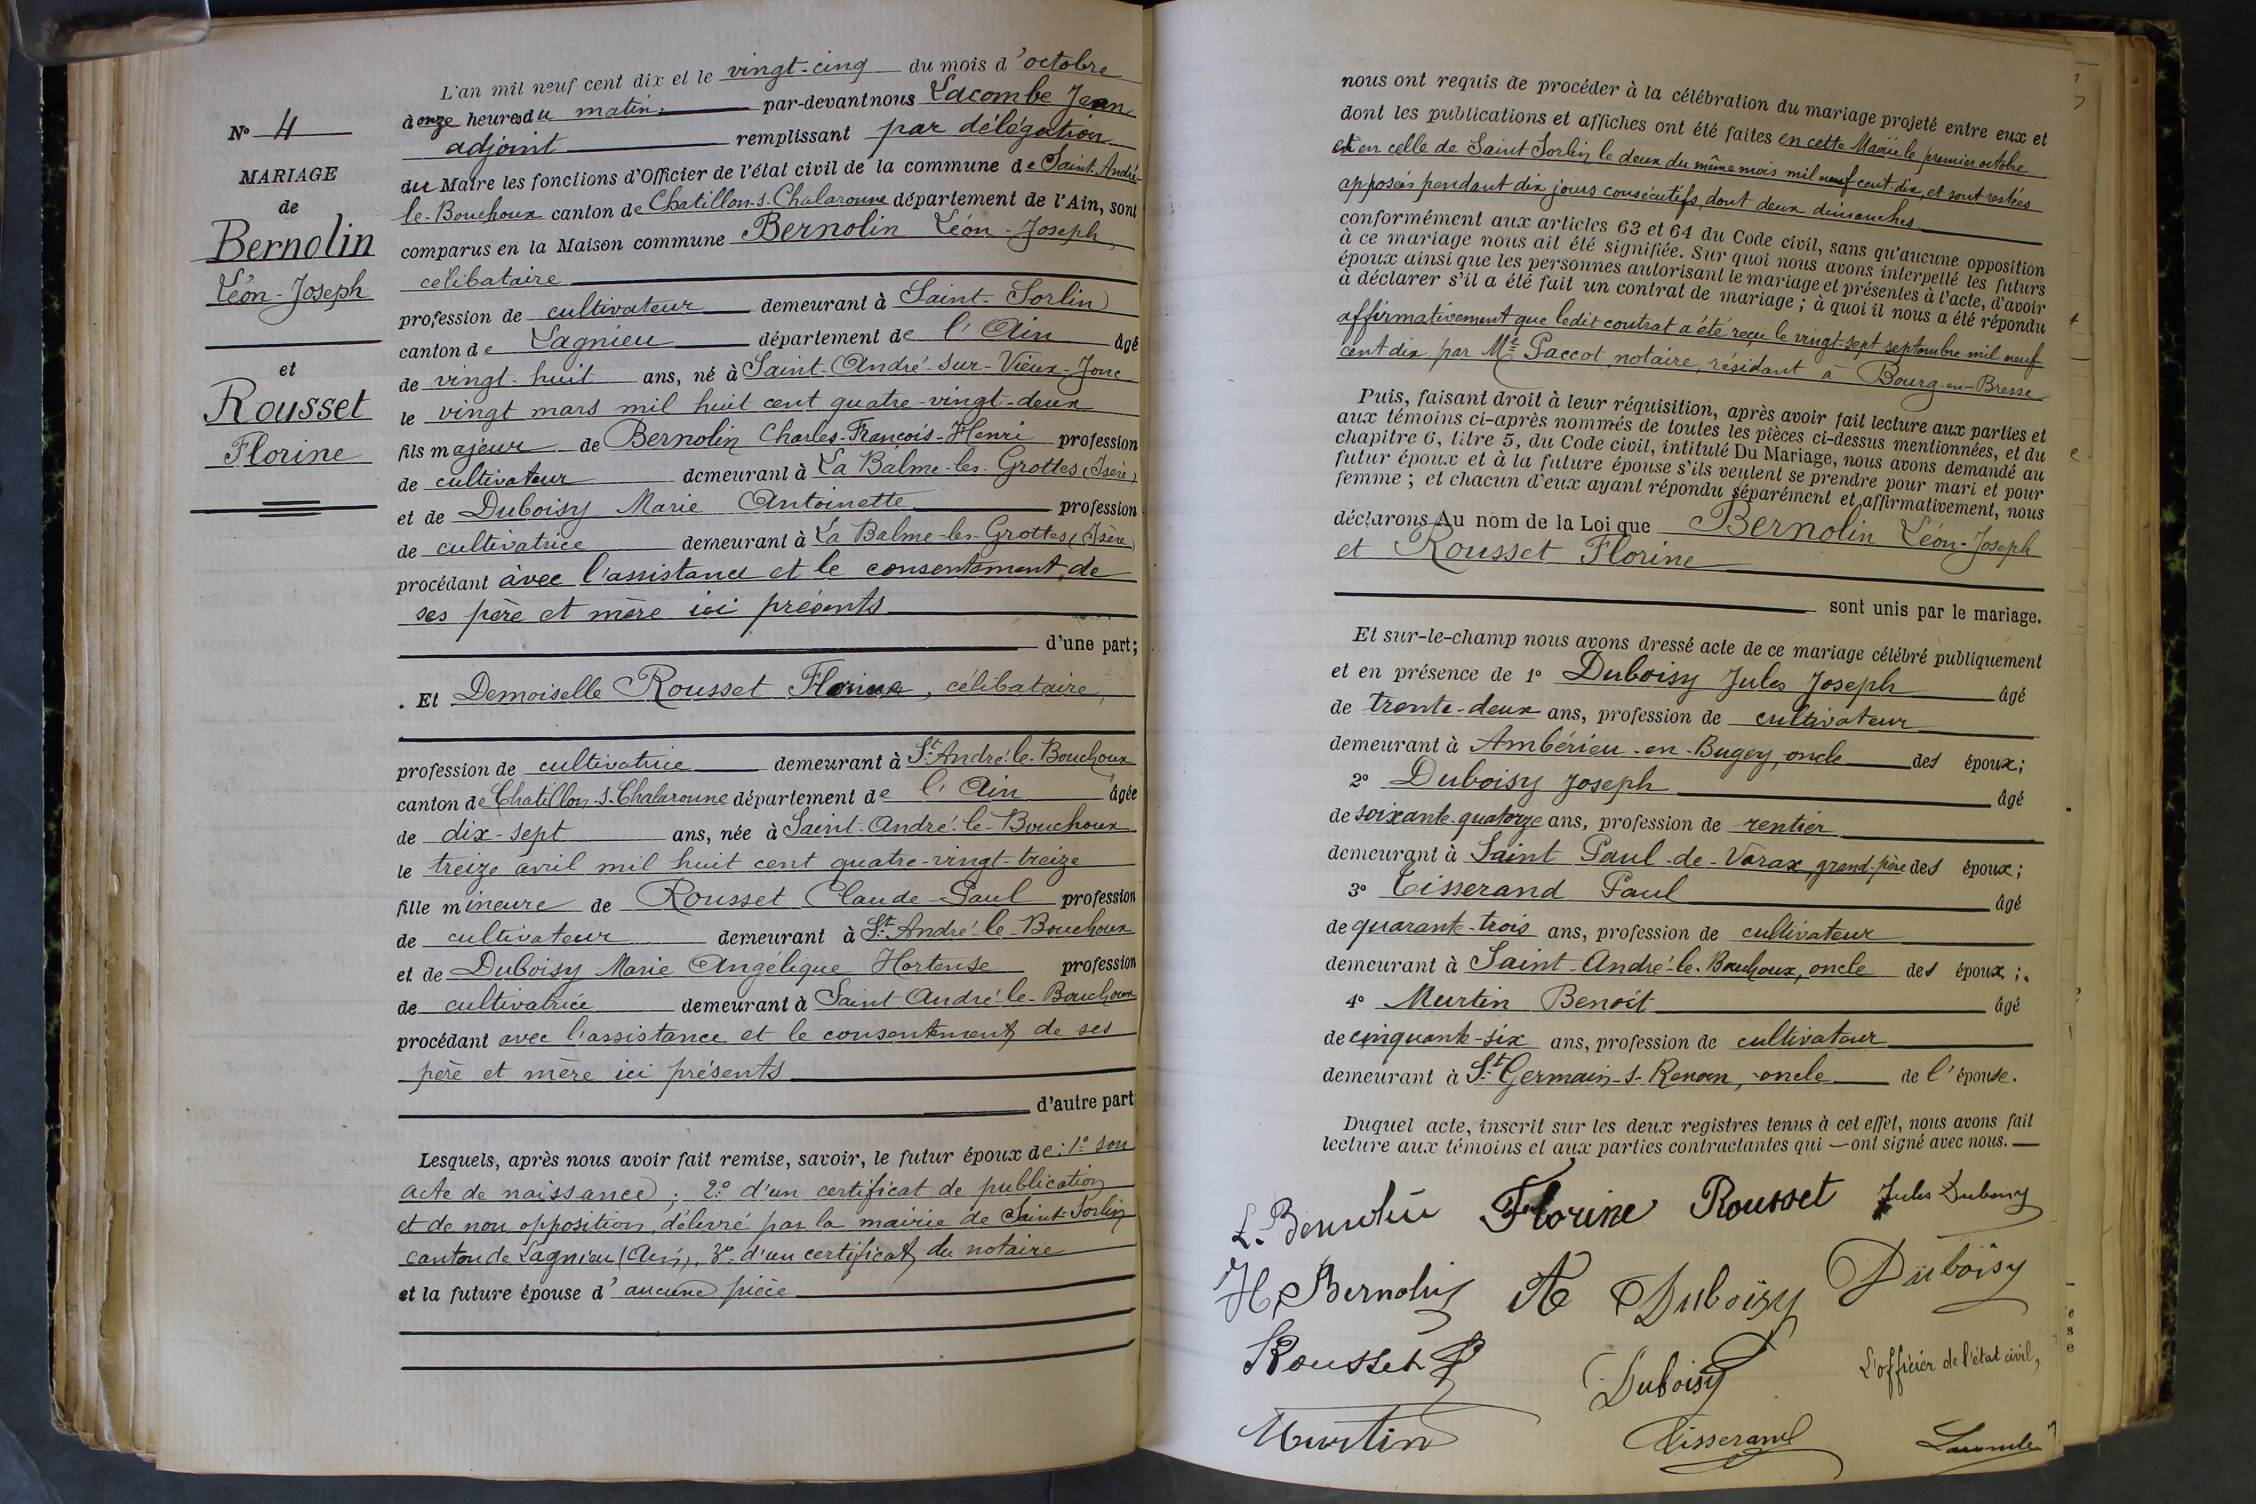 L'an mil neuf cent dix et le vingt-cinq du mois d'octobre
à onze heures du matin, par-devant nous Lacombe Jean
adjoint remplissant par délégation
du Maire les fonctions d'Officier de l'état civil de la commune de Saint-André-
le-Bouchoux canton de Chatillon-s-Chalaronne département de l'Ain, sont
comparus en la Maison commune Bernolin Léon-Joseph,
célibataire
profession de cultivateur demeurant à Saint-Sorlin
canton de Lagnieu département de l'Ain âgé
de vingt-huit ans, né à Saint-André-sur-Vieux-Jonc
le vingt mars mil huit cent quatre-vingt-deux
fils majeur de Bernolin Charles-François-Henri profession
de cultivateur demeurant à La Balme-les-Grottes (Isère)
et de Duboisy Marie Antoinette profession
de cultivatrice demeurant à La Balme-les-Grottes (Isère)
procédant avec l'assistance et le consentement de
ses père et mère ici présents
d'une part;
Et Demoiselle Rousset Florine, célibataire,
profession de cultivatrice demeurant à St-André-le-Bouchoux
canton de Chatillon-s-Chalaronne département de l'Ain âgée
de dix-sept ans, née à Saint-André-le-Bouchoux
le treize avril mil huit cent quatre-vingt-treize
fille mineure de Rousset Claude-Paul profession
de cultivateur demeurant à St-André-le-Bouchoux
et de Duboisy Marie Angélique Hortense profession
de cultivatrice demeurant à Saint André-le-Bouchoux
procédant avec l'assistance et le consentement de ses
père et mère ici présents
d'autre part
Lesquels, après nous avoir fait remise, savoir, le futur époux de: 1° son
acte de naissance; 2° d'un certificat de publication
et de non opposition, délivré par la mairie de Saint-Sorlin
canton de Lagnieu (Ain), 3° d'un certificat du notaire
et la future épouse d'aucune pièce
N° 4
MARIAGE
de
Bernolin
Léon-Joseph
et
Rousset
Florine
nous ont requis de procéder à la célébration du mariage projeté entre eux et
dont les publications et affiches ont été faites en cette Mairie le premier octobre
et en celle de Saint Sorlin le deux du même mois mil neuf cent-dix, et sont restées
apposées pendant dix jours consécutifs, dont deux dimanches
conformément aux articles 63 et 64 du Code civil, sans qu'aucune opposition
à ce mariage nous ait été signifiée. Sur quoi nous avons interpellé les futurs
époux ainsi que les personnes autorisant le mariage et présentes à l'acte, d'avoir
à déclarer s'il a été fait un contrat de mariage; à quoi il nous a été répondu
affirmativement que ledit contrat a été reçu le vingt-sept septembre mil neuf
cent dix par Me Paccot, notaire, résidant à Bourg-en-Bresse
Puis, faisant droit à leur réquisition, après avoir fait lecture aux parties et
aux témoins ci-après nommés de toutes les pièces ci-dessus mentionnées, et du
chapitre 6, titre 5, du Code civil, intitulé Du Mariage, nous avons demandé au
futur époux et à la future épouse s'ils veulent se prendre pour mari et pour
femme; et chacun d'eux ayant répondu séparément et affirmativement, nous
déclarons Au nom de la Loi que Bernolin Léon-Joseph
et Rousset Florine
sont unis par le mariage.
Et sur-le-champ nous avons dressé acte de ce mariage célébré publiquement
et en présence de 1° Duboisy Jules Joseph âgé
de trente-deux ans, profession de cultivateur
demeurant à Ambérieu-en-Bugey, oncle des époux;
2° Duboisy Joseph âgé
de soixante-quatorze ans, profession de rentier
demeurant à Saint Paul-de-Varax, grand-père des époux;
3° Tisserand Paul âgé
de quarante-trois ans, profession de cultivateur
demeurant à Saint-André-le-Bouchoux, oncle des époux;
4° Murtin Benoît âgé
de cinquante-six ans, profession de cultivateur
demeurant à St-Germain-s-Renon, oncle de l'épouse.
Duquel acte, inscrit sur les deux registres tenus à cet effet, nous avons fait
lecture aux témoins et aux parties contractantes qui — ont signé avec nous.
L. Bernolin Florine Rousset Jules Duboisy
H. Bernolin A Duboisy Duboisy
Rousset Duboisy L'officier de l'état civil,
Murtin Tisserand Lacombe